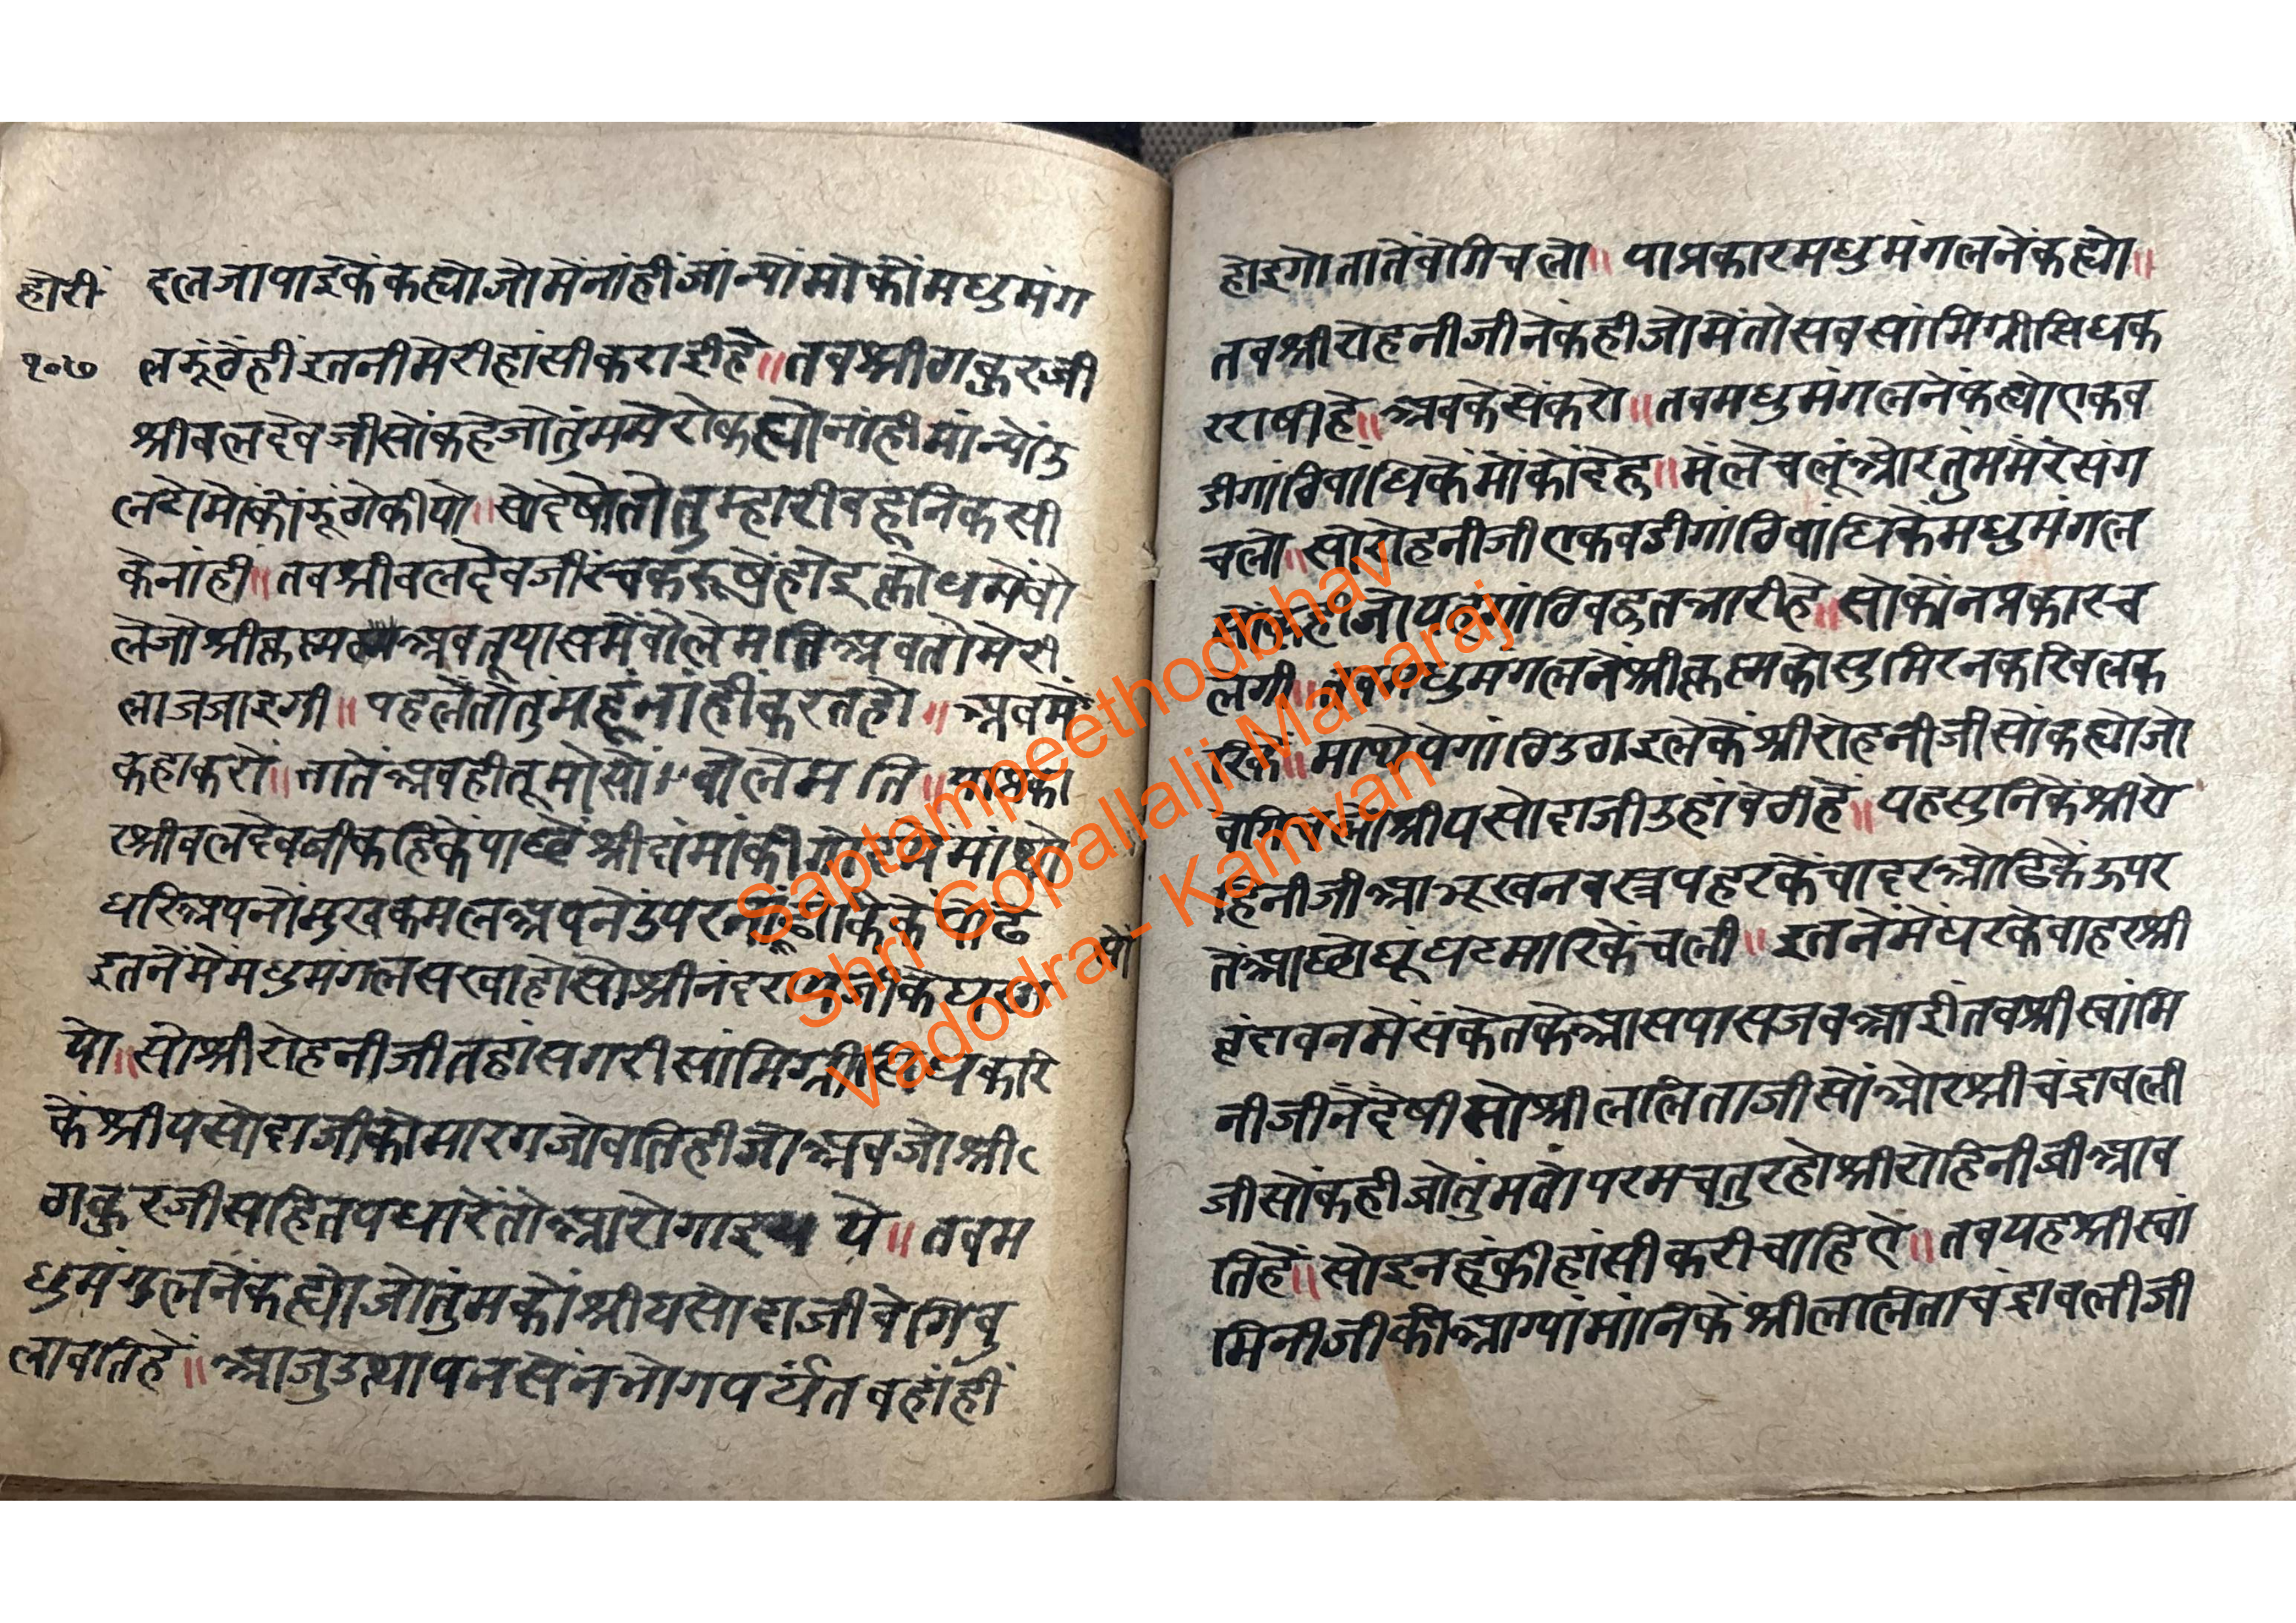 होरी
१०७
दलजापाइकेंकह्योजोमेंनांहीजांन्योमोकोंमधुमंग
लझूंठेंहींइतनीमेरीहांसीकराईहै॥तवश्रीठाकुरजी
श्रीवलदेवजीसोंकहेजोतुंममेरोकह्योनांहीमांन्योउ
लटोमोकोंझूंठोकीयो॥सोदेषोतोतुम्हारीवहूनिकसी
केनांही॥तवश्रीवलदेवजीरंचकरूषेहोइक्रोधमेंवो
लेजोश्रीकृष्णअवतूयासमेंवोलेमतिअवतोमेरी
लाजजाइगी॥पहलेंतोतुंमहूंनांहींकरतहो॥अवमें
कहाकरों॥तातेंअवहीतूमोसोंवोलेमति॥याप्रका
रश्रीवलदेवजीकहिकेंपाछेंश्रीदांमांकीगोदमेंमांथो
धरिअपनोंमुखकमलअपनेंउपरनांसूंढांकिकेंपोढे
इतनेंमेंमधुमंगलसखाहोसोश्रीनंदरायजीकेघरग
यो
यो॥सोश्रीरोहनीजीतहांसगरीसांमिग्रीसिधकरि
केंश्रीयसोदाजीकोमारगजोवतिहीजोअवजोश्री
ठाकुरजीसहितपधारेंतोआरोगाइयेये॥तवम
धुमंगलनेंकह्योजोतुंमकोंश्रीयसोदाजीवेगिवु
लावतिहें॥आजुउत्थापनसेंनभोगपर्यंतवहांहीं
होइगोतातेंवेगिचलो॥याप्रकारमधुमंगलनेंकह्यो॥
तवश्रीरोहनीजीनेंकहीजोमेंतोसवसांमिग्रीसिधक
रराषीहे॥अवकेसेंकरो॥तवमधुमंगलनेंकह्योएकव
डीगांठिवांधिकेंमोंकोंदेहु॥मेंलेचलूंओरतुंममेरेंसंग
चलो॥सोरोहनीजीएकवडीगांठिवांधिकेंमधुमंगल
सोंकहीजोयहगांठिवहुतभारीहे॥सोकोंनप्रकारच
लेगी॥तवमधुमंगलनेंश्रीकृष्णकोसुमिरनकरिवलक
रिकें॥माथेपेगांठिउठाइलेकेंश्रीरोहनीजीसोंकह्योजो
वेगिचलोश्रीयसोदाजीउहांवेठीहें॥यहसुनिकेंश्रीरो
हिनीजीआभूखनवस्त्रपहरकेंचादरओढिकेंऊपर
तेंआछोघूंघटमारिकेंचली॥इतनेंमेंघरकेवाहरश्री
वृंदावनमेंसंकेतकेआसपासजवआईतवश्रीस्वांमि
नीजीनेंदेषीसोश्रीललिताजीसोंओरश्रीचंद्रावली
जीसोंकहीजोतुंमतोपरमचतुरहोश्रीरोहिनीजीआव
तिहें॥सोइनहूंकीहांसीकरीचाहिए॥तवयहश्रीस्वां
मिनीजीकीआग्यांमांनिकेंश्रीललिताचंद्रावलीजी
Saptampeethodbhav
Shri Gopallalji Maharaj
Vadodra - Kamvan